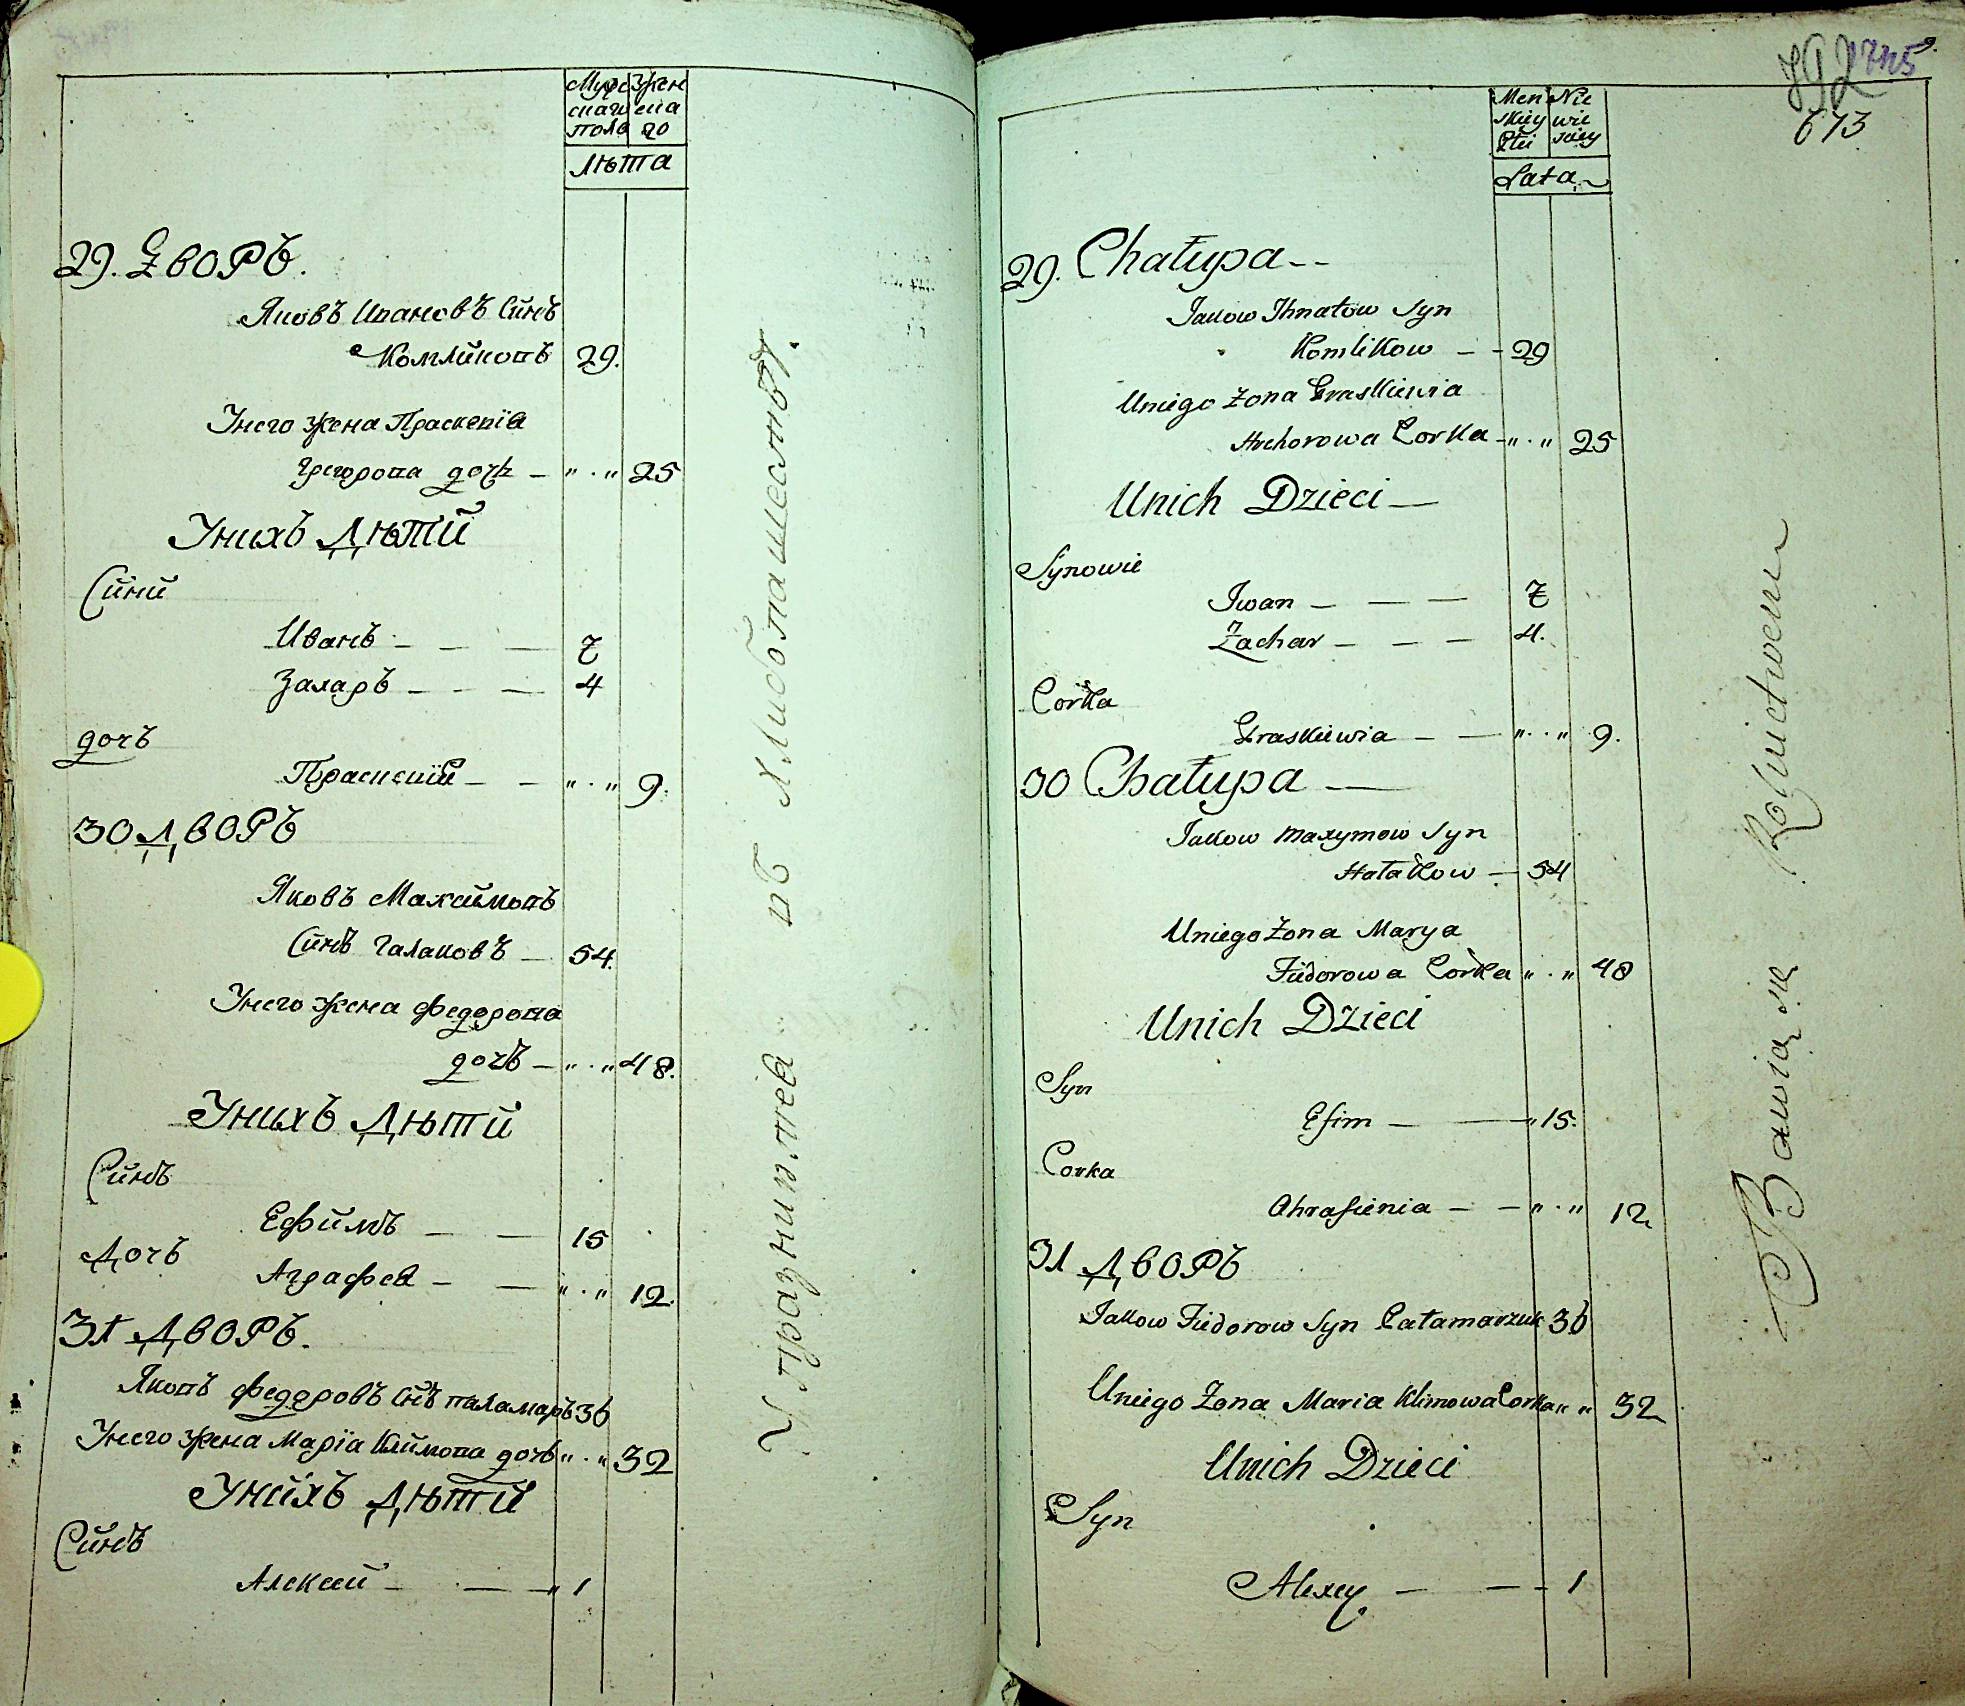 Мужскаго пола
Женскаго
Лѣта
29. Дворъ.
Яковъ Ивановъ Синъ
Комликовъ 29.
Унего жена Праскевія
Григорова дочь — „ . „ 25
Унихъ Дѣтй
Сйнй
Иванъ — — — 7
Захаръ — — — 4
дочъ
Праскевія — — „ . „ 9.
30 Дворъ
Яковъ Махсймовъ
Сйнъ Галаковъ — 54.
Унего жена Федорова
дочъ — „ . „ 48.
Унихъ Дѣтй
Сйнъ
Ефймъ — — 15
Дочъ
Аграфеа — — „ . „ 12.
31 Дворъ.
Яковъ Федоровъ Снъ паламаръ 36
Унего жена Марїа Клймова дочъ „ . „ 32
Унйхъ Дѣтй
Сйнъ
Алексей — — „ 1
Упразнип.теа въ хлибопашествѣ.
7115
673
Menskiey Płci
Niewieskiey
Lata
29. Chałupa --
Jakow Ihnatow Syn
Komlikow — - 29
Uniego Zona Praskiewia
Hrehorowa Corka - „ . „ 25
Unich Dzieci —
Synowie
Iwan — — — 7
Zachar — — — 4.
Corka
Praskiewia — — „ . . „ 9.
30 Chałupa —
Jakow Maxymow Syn
Hałakow — 54
Uniego Zona Marya
Fiedorowa Corka „ . „ 48
Unich Dzieci
Syn
Efim — — „ 15.
Corka
Ahrafienia — — „ . „ 12
31 Дворъ
Jakow Fiedorow Syn Pałamarzuk 36
Uniego Zona Maria Klimowa Corka „ „ 32
Unich Dzieci
Syn
Alexey — — - 1
Bawią się Rolnictwem